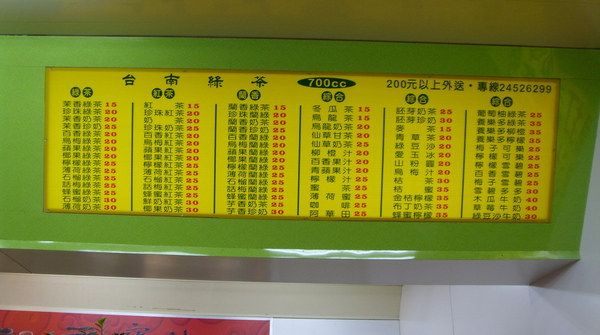 台南綠茶 700cc 200元以上外送•專線24526299
綠茶
茉香綠茶 15
珍珠綠茶 20
茉香奶茶 20
珍珠奶茶 25
百香綠茶 20
烏梅綠茶 20
蘋果綠茶 20
椰果綠茶 20
檸檬綠茶 25
薄荷綠茶 25
石榴綠茶 25
話梅綠茶 25
蜂蜜綠茶 25
石榴奶茶 25
薄荷奶茶 25
紅茶
紅茶 15
珍珠紅茶 20
奶茶 20
珍珠奶茶 25
百香紅茶 20
烏梅紅茶 20
蘋果紅茶 20
椰果紅茶 20
檸檬紅茶 25
薄荷紅茶 25
石榴紅茶 25
話梅紅茶 25
蜂蜜紅茶 25
鮮奶紅茶 30
椰果奶茶 30
蘭香
蘭香綠茶 15
珍珠蘭綠 20
蘭香奶茶 20
蘭香珍奶 25
百香蘭綠 20
烏梅蘭綠 20
蘋果蘭綠 20
椰果蘭綠 20
檸檬蘭綠 25
薄荷蘭綠 25
石榴蘭綠 25
話梅蘭綠 25
蜂蜜蘭綠 25
芋香奶茶 25
芋香珍奶 30
綜合
冬瓜茶 15
烏龍茶 15
烏龍奶茶
仙草甘茶
仙草奶茶
柳橙汁
百香果汁
青蘋果汁
檸檬汁
蜜茶
薄荷
咖啡 25
阿華田 25
綜合
胚芽奶茶 25
胚芽珍奶 30
麥茶
青草茶 20
綠豆沙
愛玉冰 20
山粉圓 20
烏梅汁
桔茶
桔蜜
金桔檸檬
布丁奶茶 35
蜂蜜檸檬 35
綜合
葡萄柚綠茶 25
養樂多綠茶
養樂多柳橙 35
養樂多檸檬 35
梅子可雪碧
檸檬可樂
百香雪碧
梅子雪碧
雪碧多多 30
木瓜牛奶 40
草莓牛奶 40
綠豆沙牛奶 40